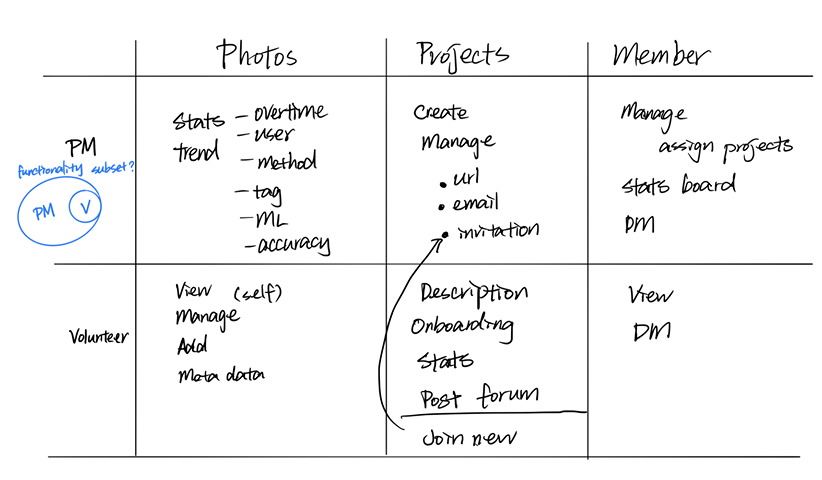 Photos
Projects
Member
PM
functionality subset?
PM V
Stats - overtime
- user
trend
- method
- tag
- ML
- accuracy
Create
Manage
• url
• email
• invitation
Manage
assign projects
Stats board
DM
Volunteer
View (self)
Manage
Add
Meta data
Description
Onboarding
Stats
Post forum
Join new
View
DM